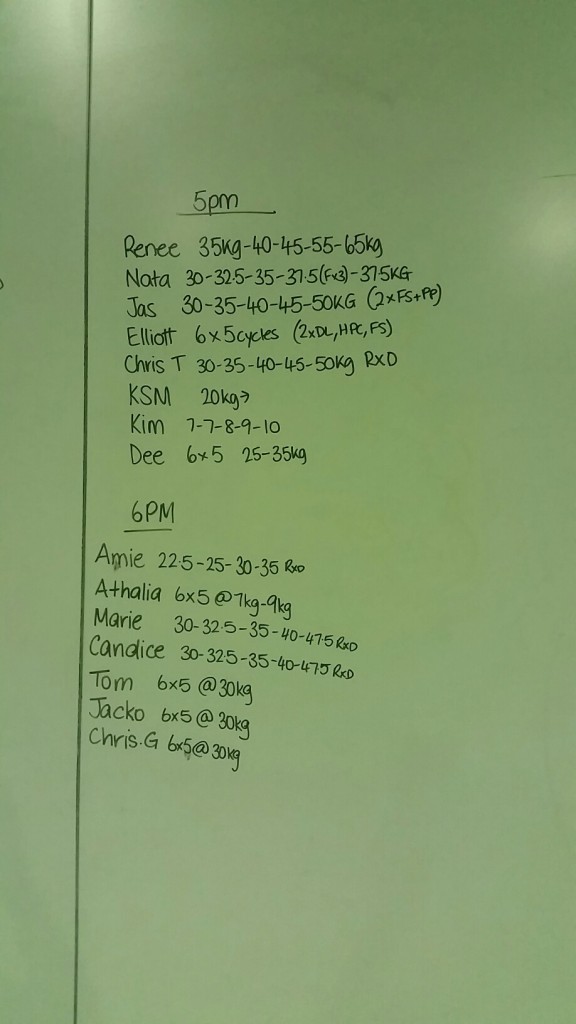 5pm
Renee 35kg-40-45-55-65kg
Nata 30-32.5-35-37.5(Fx3)-37.5KG
Jas 30-35-40-45-50KG (2xFS+PP)
Elliott 6x5cycles (2xDL,HPC,FS)
Chris T 30-35-40-45-50kg RxD
KSM 20kg→
Kim 7-7-8-9-10
Dee 6x5 25-35kg
6PM
Amie 22.5-25-30-35 RxD
Athalia 6x5 @7kg-9kg
Marie 30-32.5-35-40-47.5 RxD
Candice 30-32.5-35-40-47.5 RxD
Tom 6x5 @30kg
Jacko 6x5 @ 30kg
Chris.G 6x5@30kg